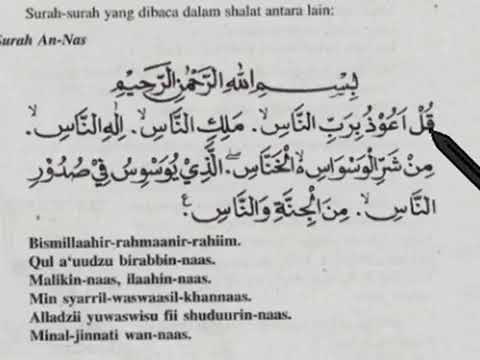 Surah-surah yang dibaca dalam shalat antara lain:
Surah An-Nas
بِسْمِ اللهِ الرَّحْمٰنِ الرَّحِيْمِ
قُلْ اَعُوْذُ بِرَبِّ النَّاسِۙ. مَلِكِ النَّاسِۙ. اِلٰهِ النَّاسِۙ.
مِنْ شَرِّ الْوَسْوَاسِ ەۙ الْخَنَّاسِۖ. الَّذِيْ يُوَسْوِسُ فِيْ صُدُوْرِ
النَّاسِۙ. مِنَ الْجِنَّةِ وَالنَّاسِ ࣖ.
Bismillaahir-rahmaanir-rahiim.
Qul a‘uudzu birabbin-naas.
Malikin-naas, ilaahin-naas.
Min syarril-waswaasil-khannaas.
Alladzii yuwaswisu fii shuduurin-naas.
Minal-jinnati wan-naas.